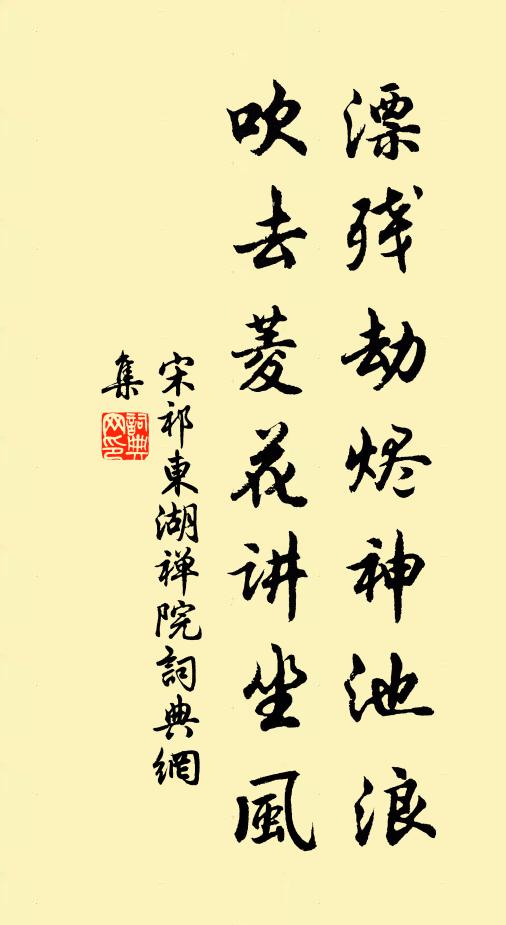 漂残劫烬神池浪
吹去菱花讲坐風
宋祁東湖禅院詞典網
集
詞典
网印